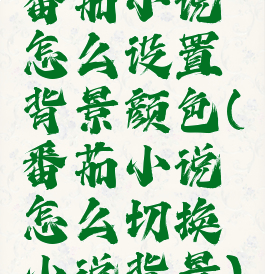 番茄小说
怎么设置
背景颜色(
番茄小说
怎么切换
小说背景)